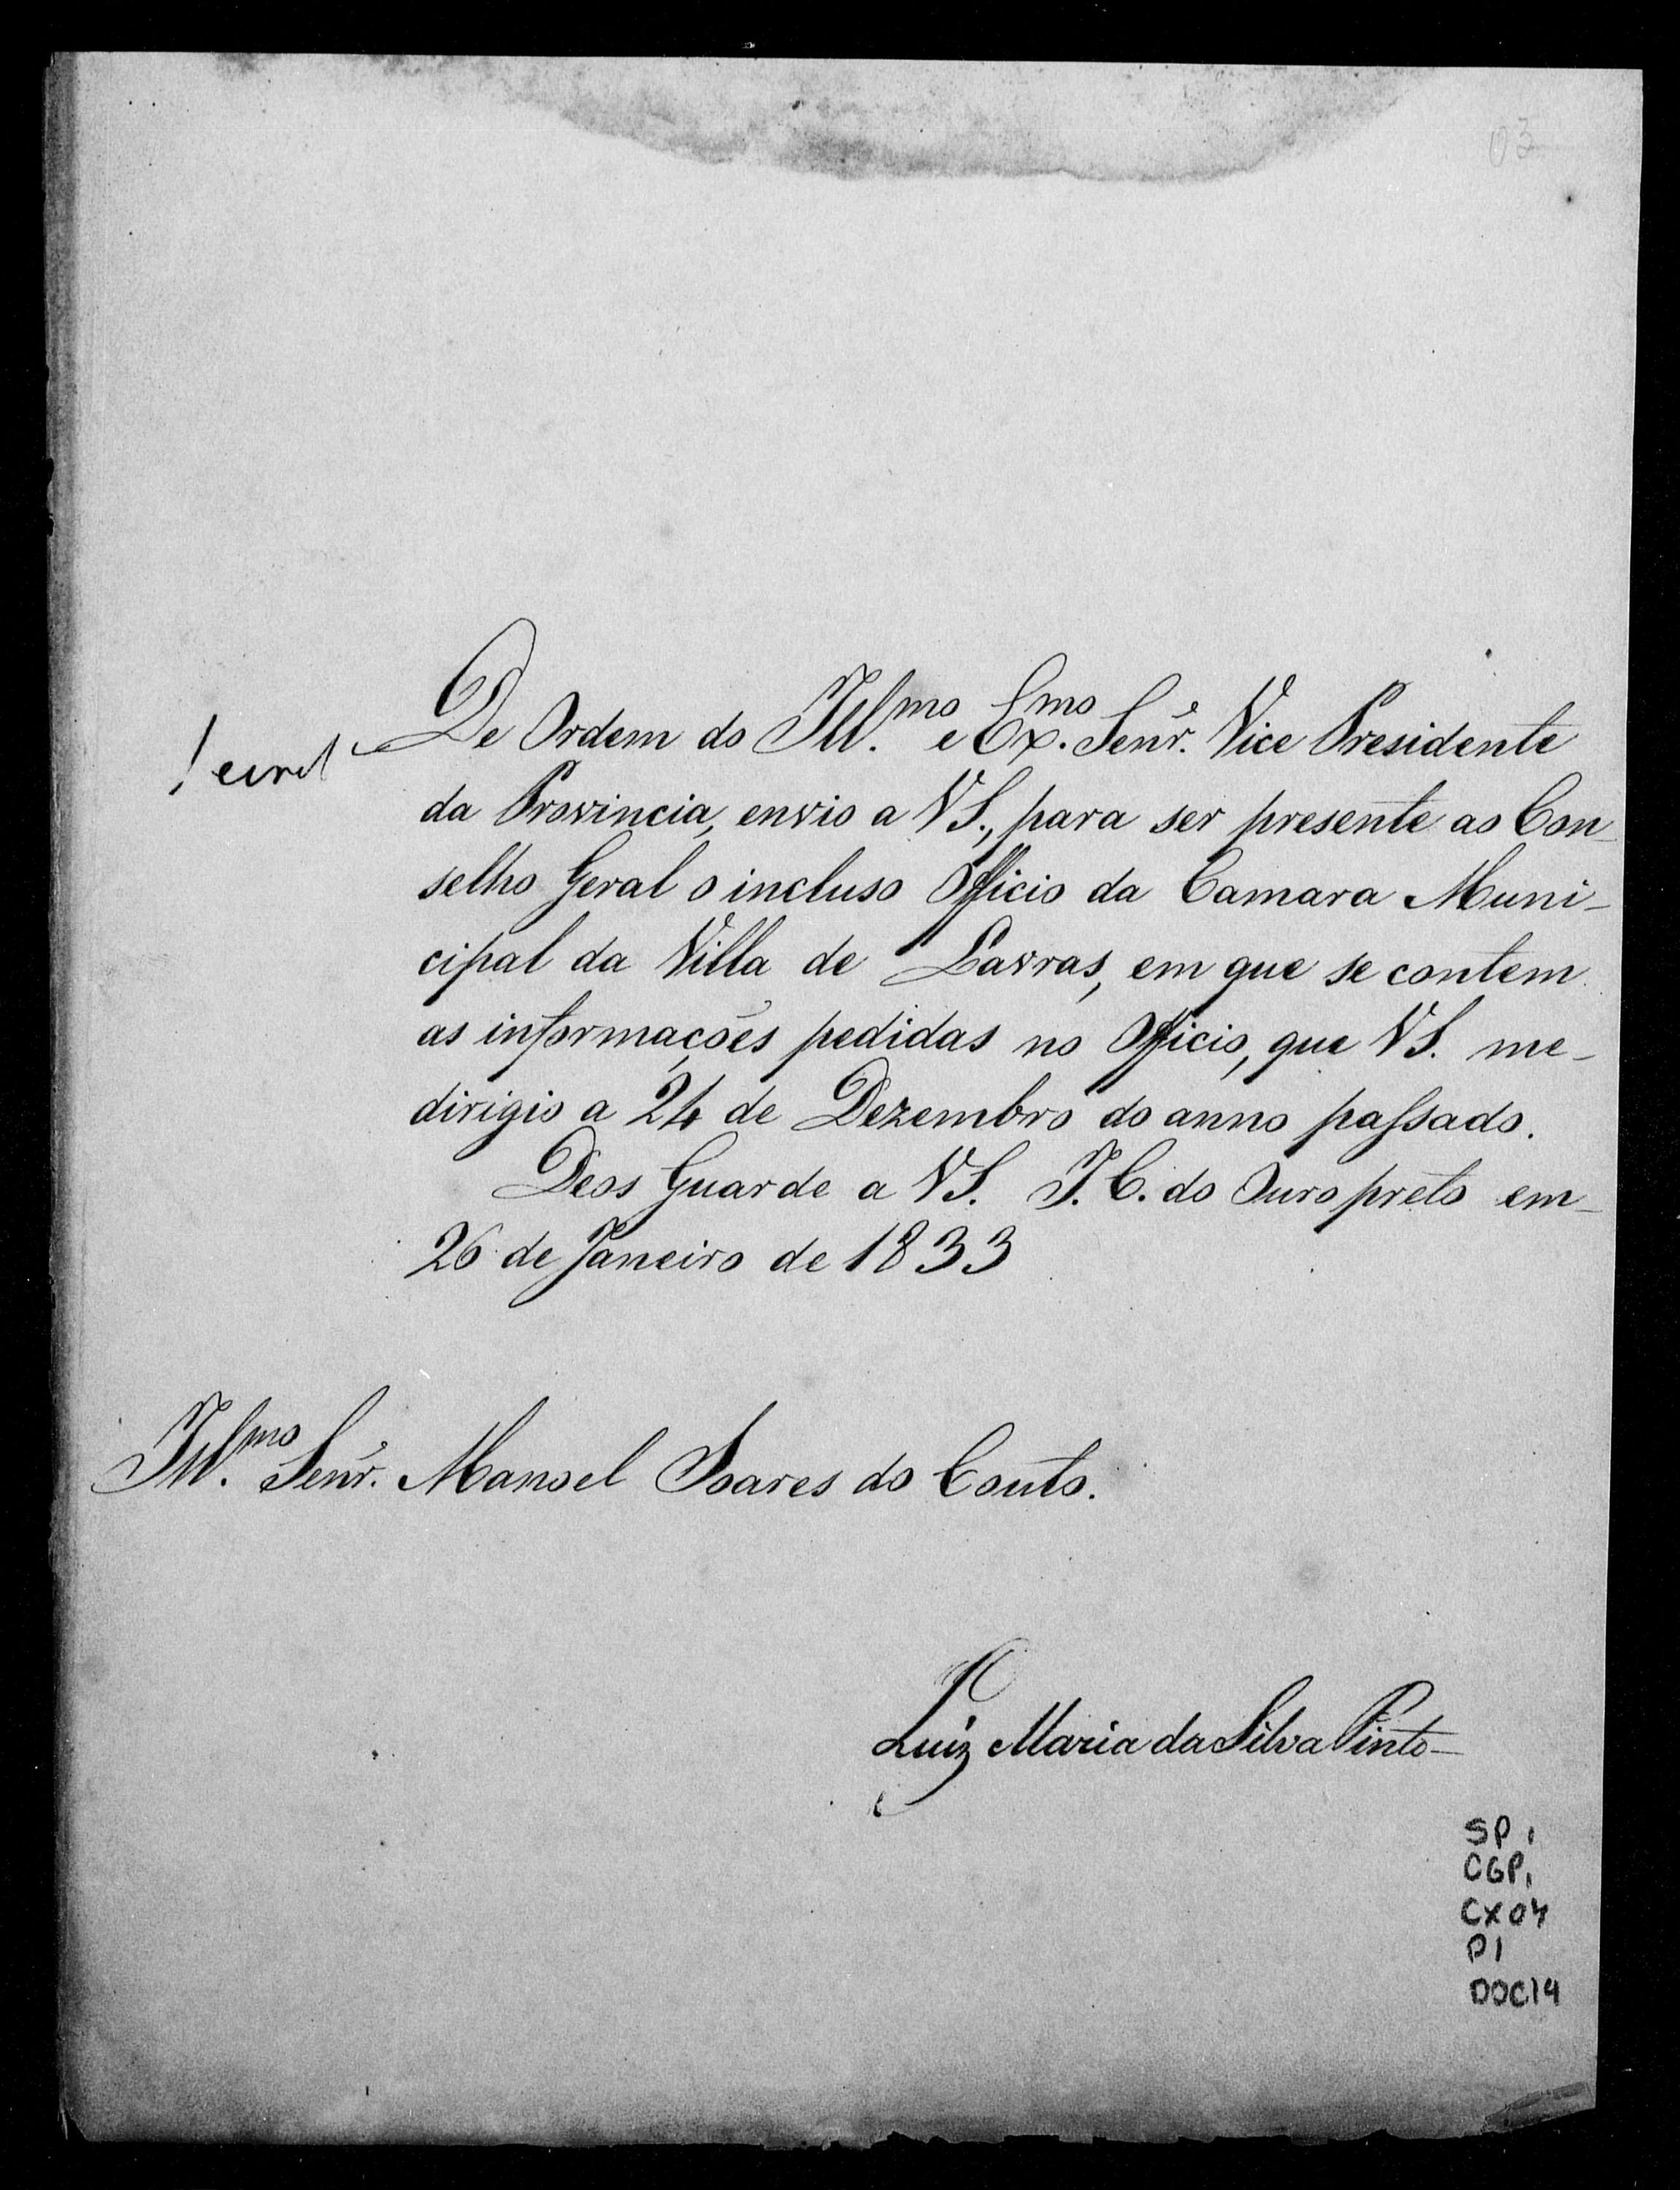 03
De Ordem do Ill.mo e Ex.mo Senr. Vice Presidente
da Provincia, envio a VS., para ser presente ao Con_
selho Geral o incluso Officio da Camara Muni_
cipal da Villa de Lavras, em que se contem
as informações pedidas no Officio, que VS. me_
dirigio a 24 de Dezembro do anno passado.
Deos Guarde a VS. I. C. do Ouro preto em_
26 de Janeiro de 1833
Ill.mo Senr. Manoel Soares do Couto.
Luiz Maria da Silva Pinto_
SP1
CGP1
CX04
P1
DOC14